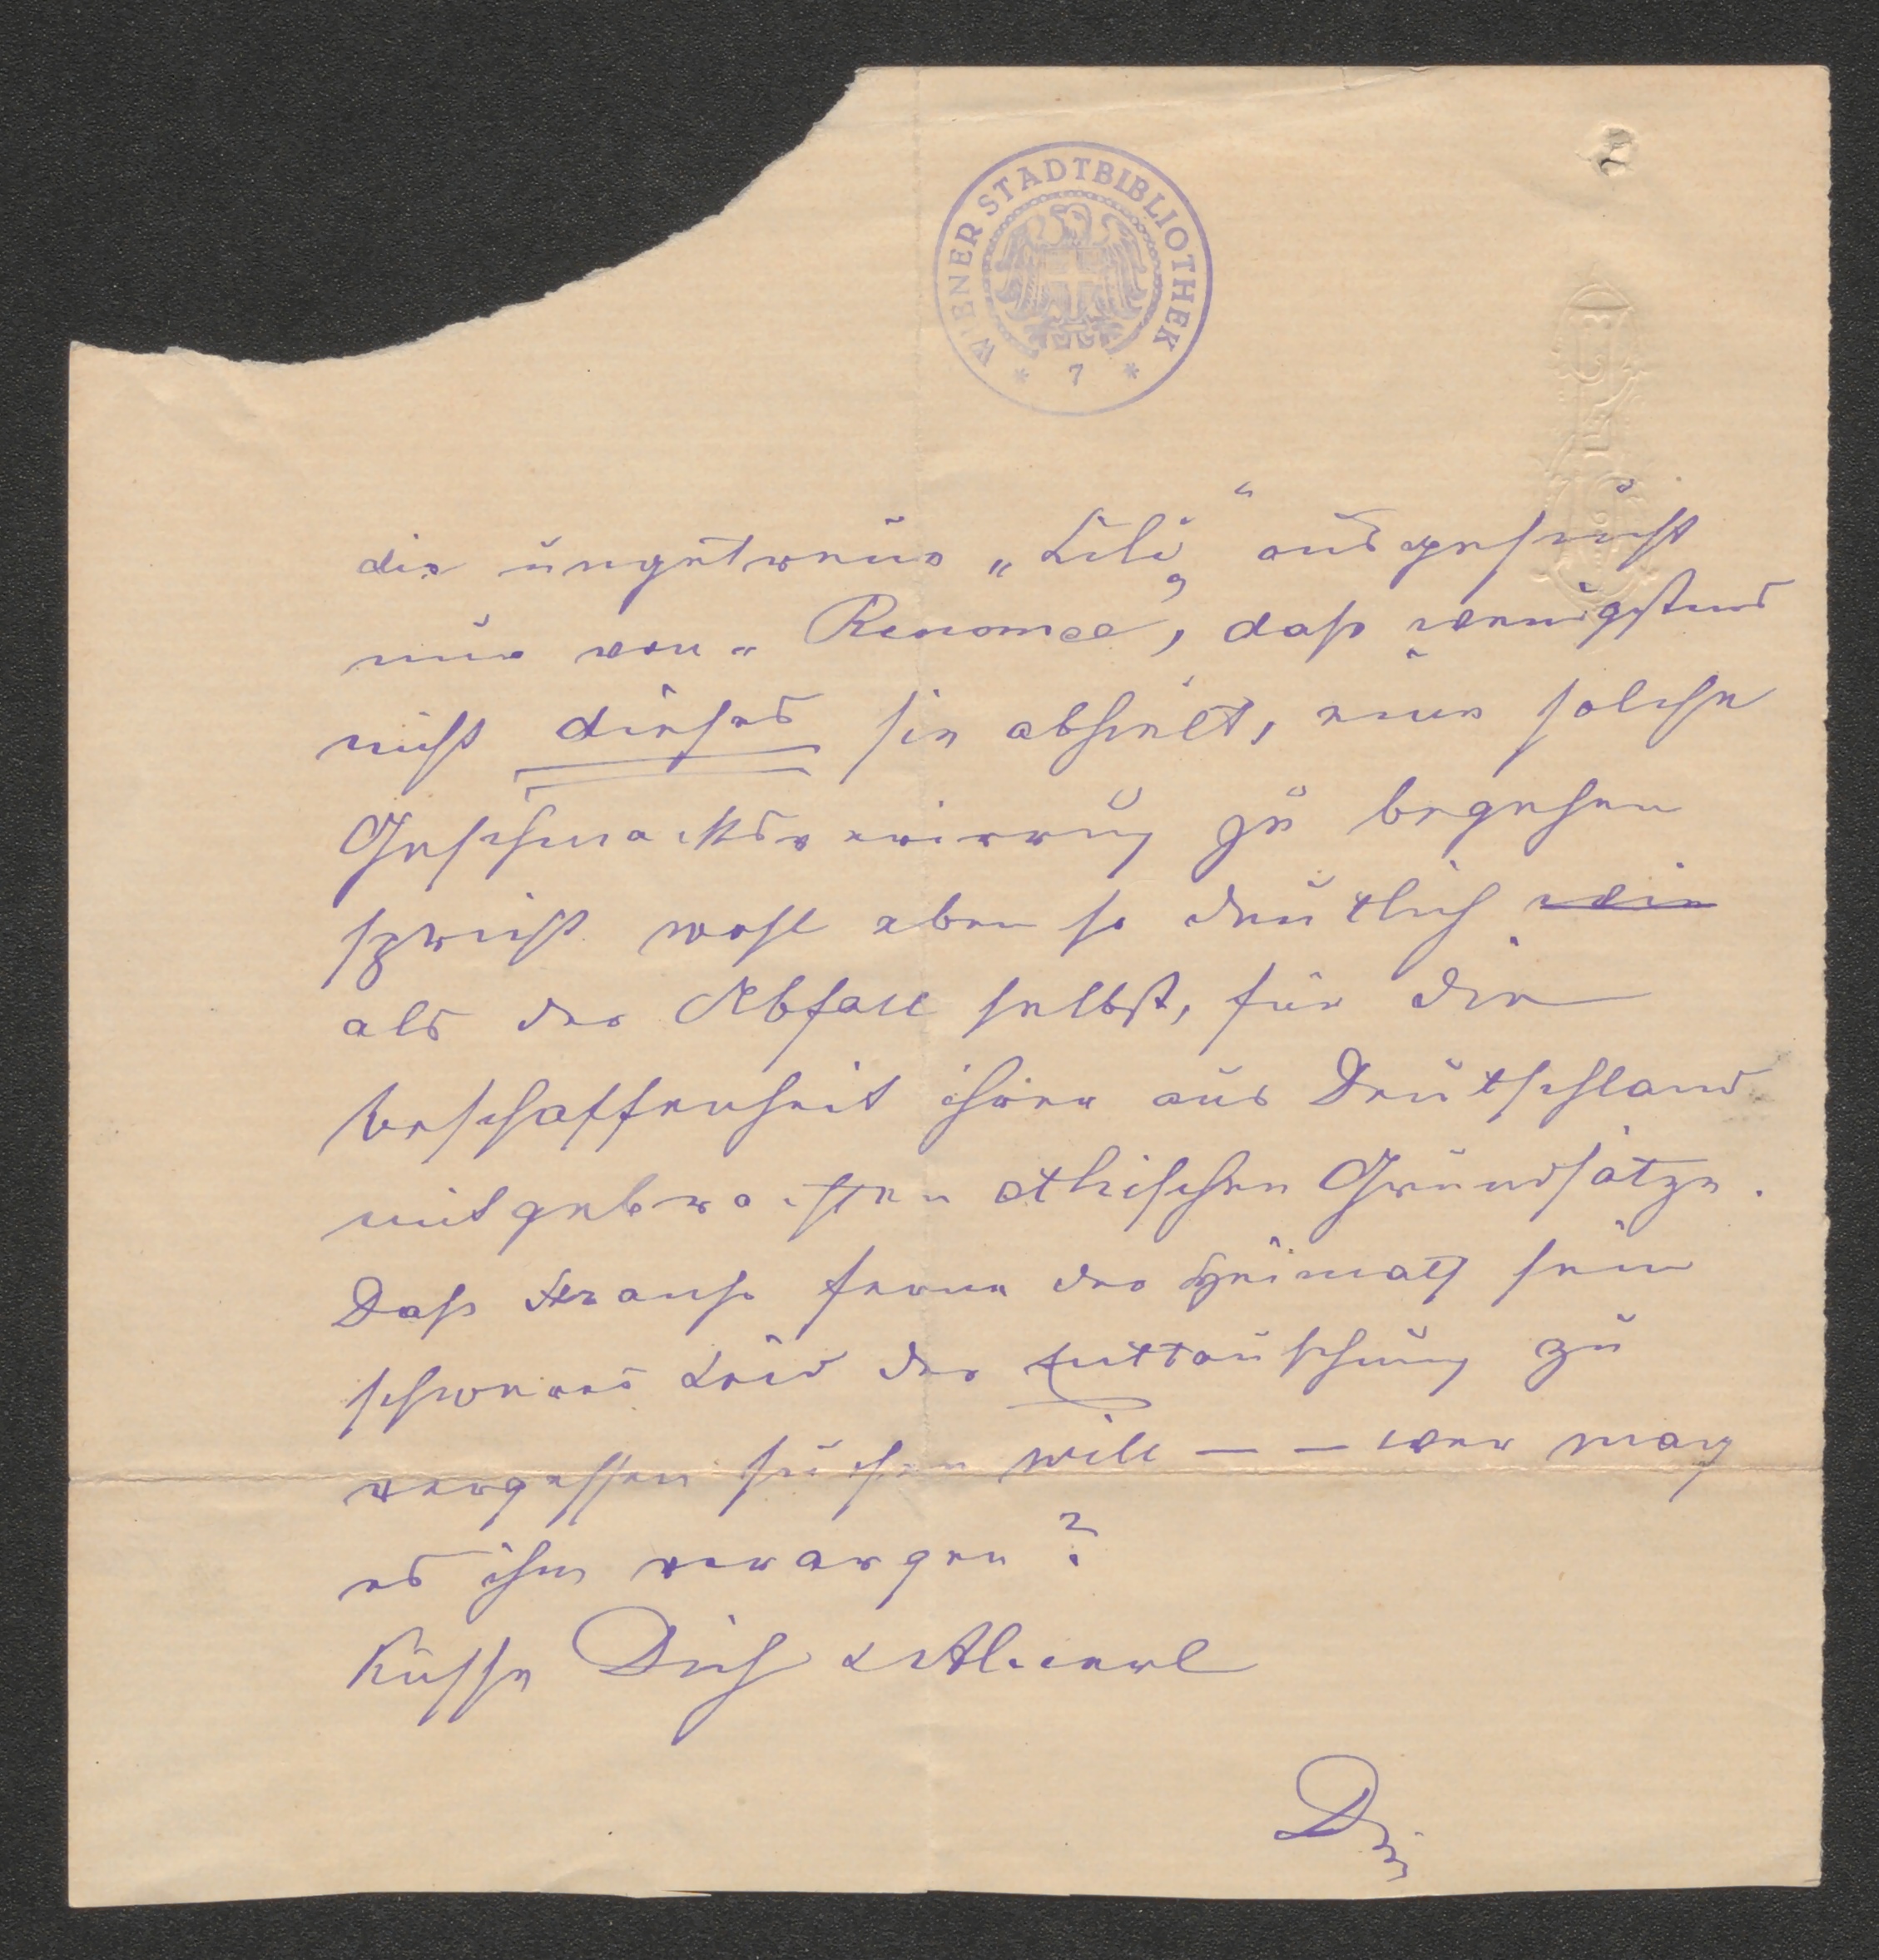 WIENER STADTBIBLIOTHEK
* 7 *
die ungetreue „Lili“ ausgesucht
nur von Renomee, daß wenigstens
nicht dieses sie abhielt, eine solche
Geschmacksverirrung zu begehen
spricht wohl eben so deutlich wie
als der Abfall selbst, für die
Beschaffenheit ihrer aus Deutschland
mitgebrachten ethischen Grundsätze.
Daß Strauß ferne der Heimath sein
schweres Leid der Enttäuschung zu
vergessen suchen will — — wer mag
es ihm verargen?
Küsse Dich
Dein